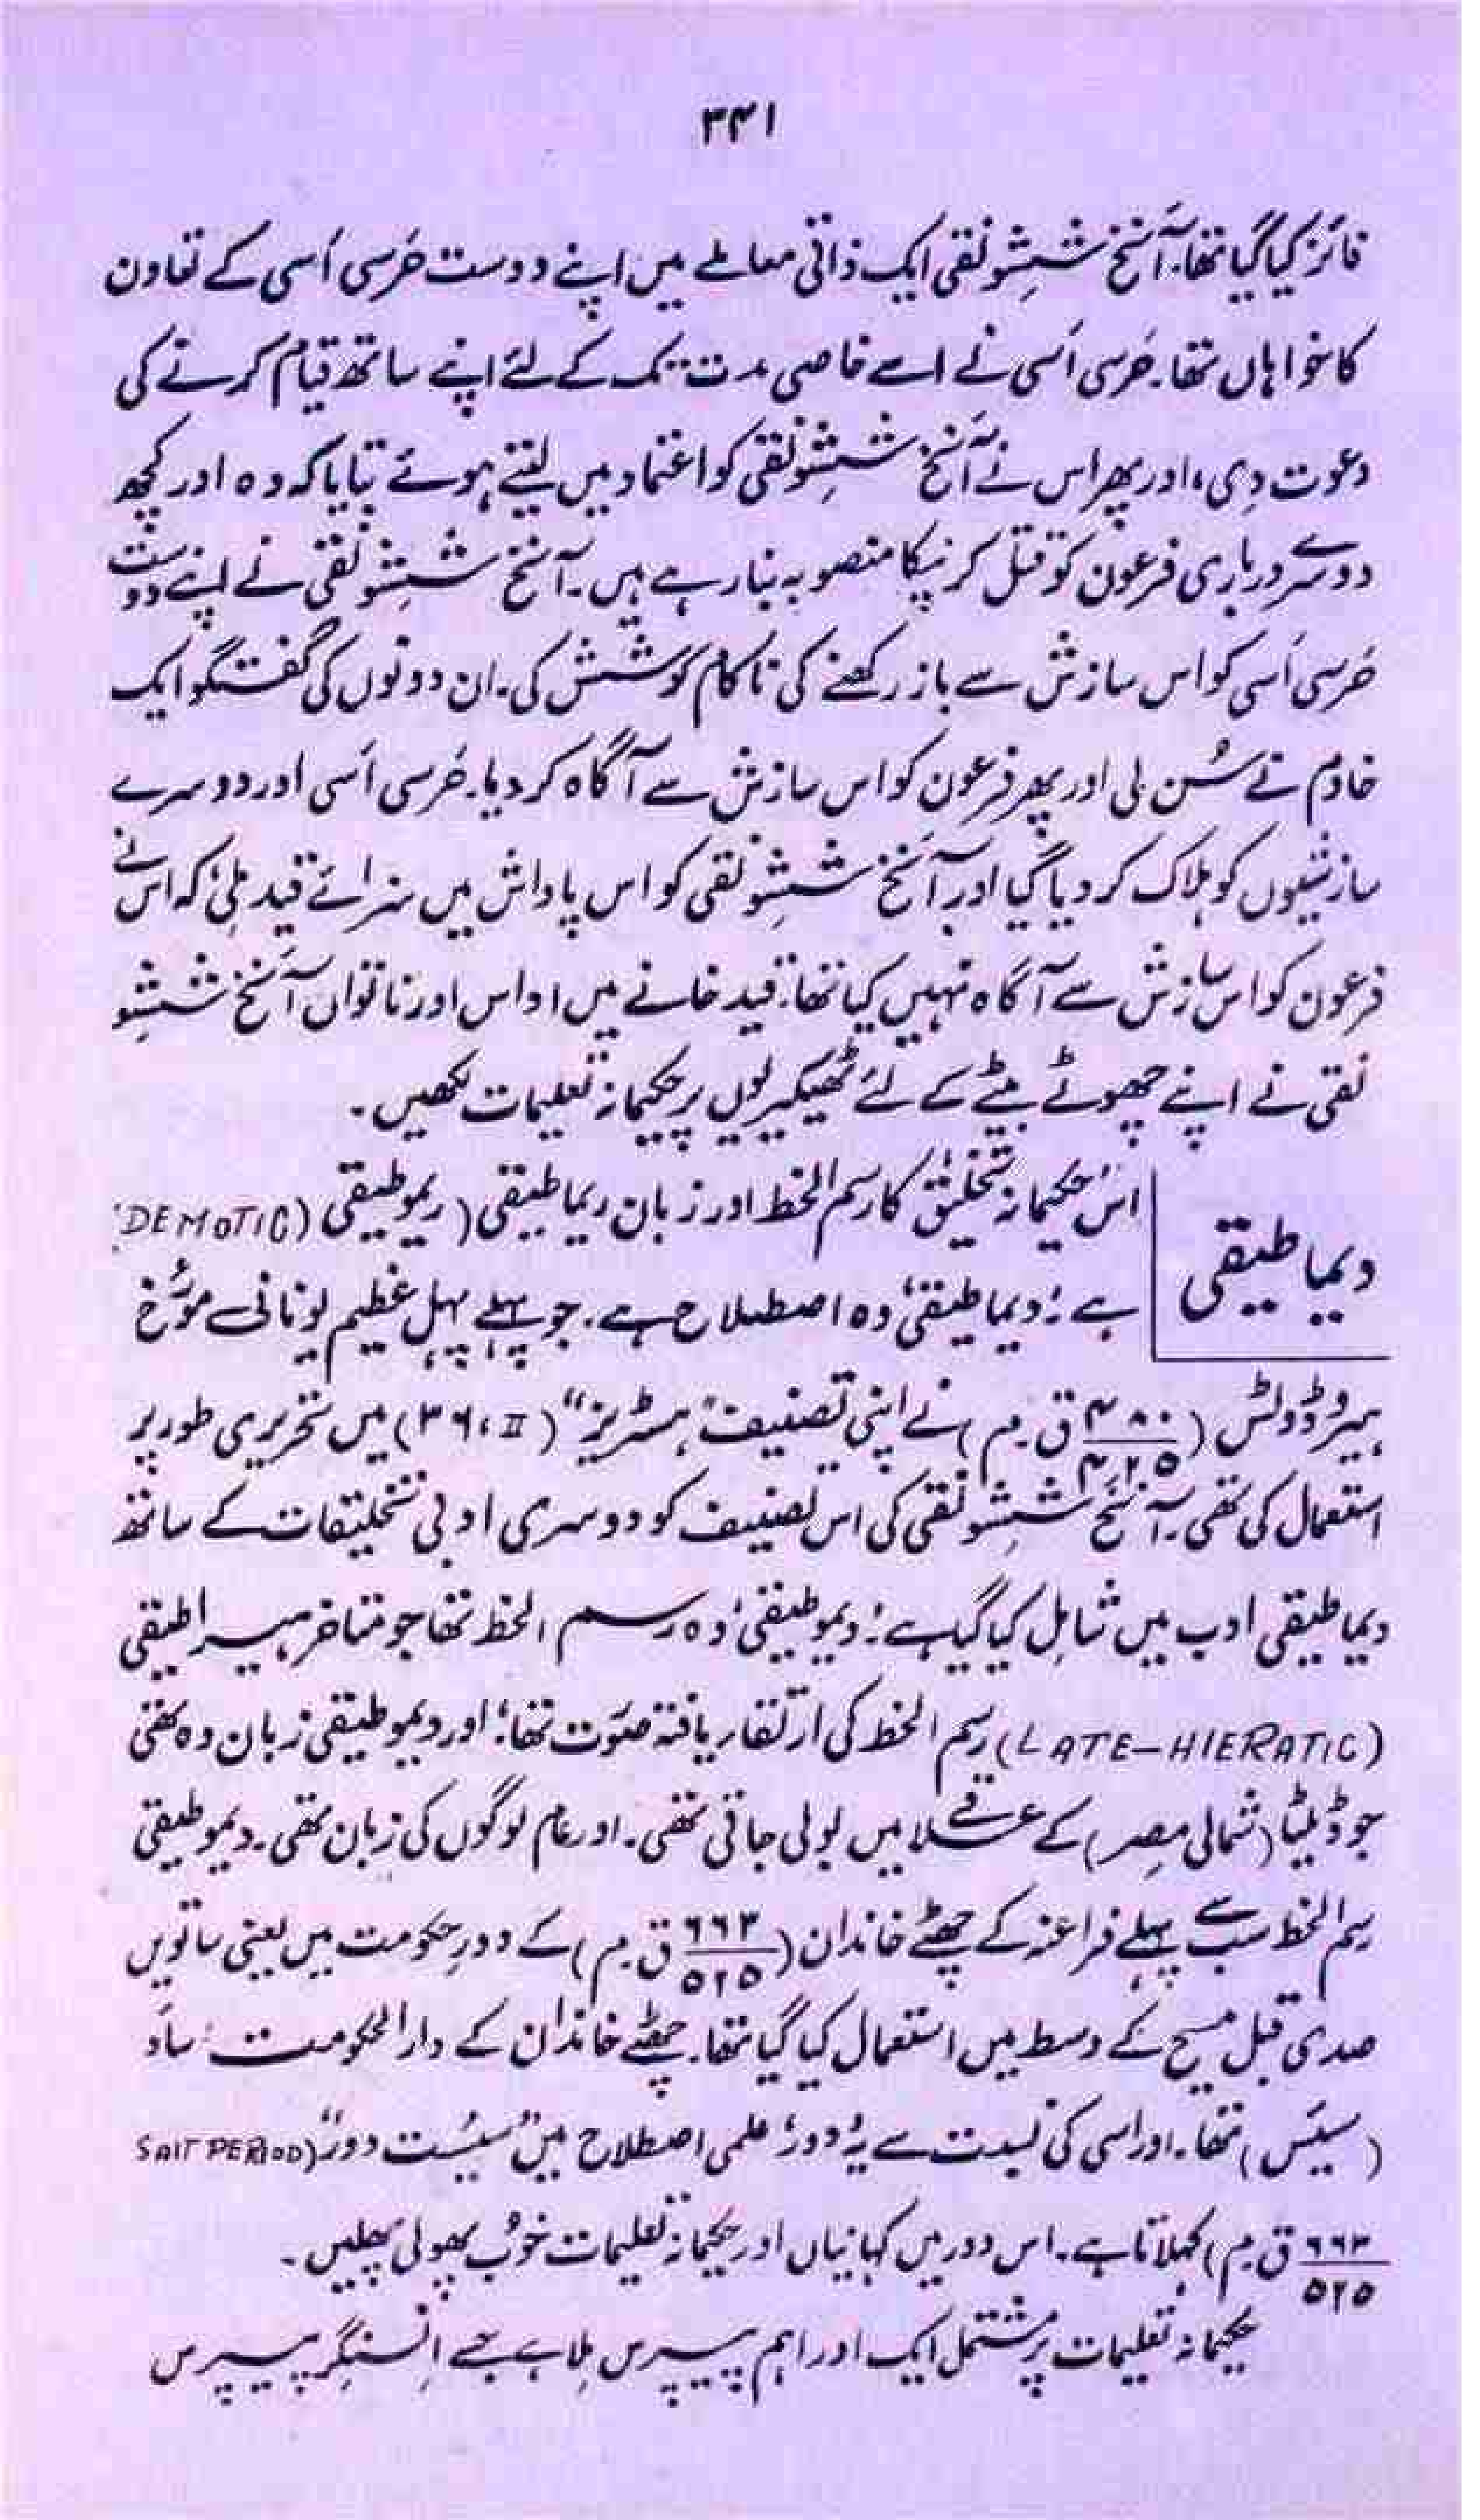 ۳۴۱
فائز کیا گیا تھا۔ آنخ شیشونقی ایک ذاتی معاملے میں اپنے دوست حَرسی اَسی کے تعاون
کا خواہاں تھا۔ حَرسی اَسی نے اسے خاصی مدت تک کے لئے اپنے ساتھ قیام کرنے کی
دعوت دی، اور پھر اس نے آنخ شیشونقی کو اعتماد میں لیتے ہوئے بتایا کہ وہ اور کچھ
دوسرے درباری فرعون کو قتل کرنیکا منصوبہ بنا رہے ہیں۔ آنخ شیشونقی نے اپنے دوست
حَرسی اَسی کو اس سازش سے باز رکھنے کی ناکام کوشش کی۔ ان دونوں کی گفتگو ایک
خادم نے سُن لی اور پھر فرعون کو اس سازش سے آگاہ کر دیا۔ حَرسی اَسی اور دوسرے
سازشیوں کو ہلاک کر دیا گیا اور آنخ شیشونقی کو اس پاداش میں سزائے قید ملی، کہ اس نے
فرعون کو اس سازش سے آگاہ نہیں کیا تھا۔ قید خانے میں اداس اور ناتواں آنخ شیشو
نقی نے اپنے چھوٹے بیٹے کے لئے ٹھیکریوں پر حکیمانہ تعلیمات لکھیں۔
دیماطیقی
اس حکیمانہ تخلیق کا رسم الخط اور زبان دیماطیقی (دیموطیقی (DEMOTIC)
ہے۔ 'دیماطیقی' وہ اصطلاح ہے۔ جو پہلے پہل عظیم یونانی مورُخ
ہیروڈوٹس (۴۸۰/۴۲۵ ق۔م) نے اپنی تصنیف "ہسٹریز" (II، ۳۶) میں تحریری طور پر
استعمال کی تھی۔ آنخ شیشونقی کی اس تصنیف کو دوسری ادبی تخلیقات کے ساتھ
دیماطیقی ادب میں شامل کیا گیا ہے۔ 'دیموطیقی' وہ رسم الخط تھا جو متاخر ہیراطیقی
(LATE-HIERATIC) رسم الخط کی ارتقار یافتہ صوَرت تھا؛ اور دیموطیقی زبان وہ تھی
جو ڈیلٹا (شمالی مِصر) کے علاقے میں بولی جاتی تھی۔ اور عام لوگوں کی زبان تھی۔ دیموطیقی
رسم الخط سب سے پہلے فراعنہ کے چھٹے خاندان (۶۶۳/۵۲۵ ق۔م) کے دورِ حکومت میں یعنی ساتویں
صدی قبل مسیح کے وسط میں استعمال کیا گیا تھا۔ چھٹے خاندان کے دار الحکومت ساَو
(سیئس) تھا۔ اور اسی کی نسبت سے یہ 'دور' علمی اصطلاح میں "سیئت دور" (SAIT PERIOD)
۶۶۳/۵۲۵ ق۔م) کہلاتا ہے۔ اس دور میں کہانیاں اور حکیمانہ تعلیمات خوُب پھولی پھلیں۔
حکیمانہ تعلیمات پر مشتمل ایک اور اہم پیپرس مِلا ہے جسے اِنسنگِر پیپرس